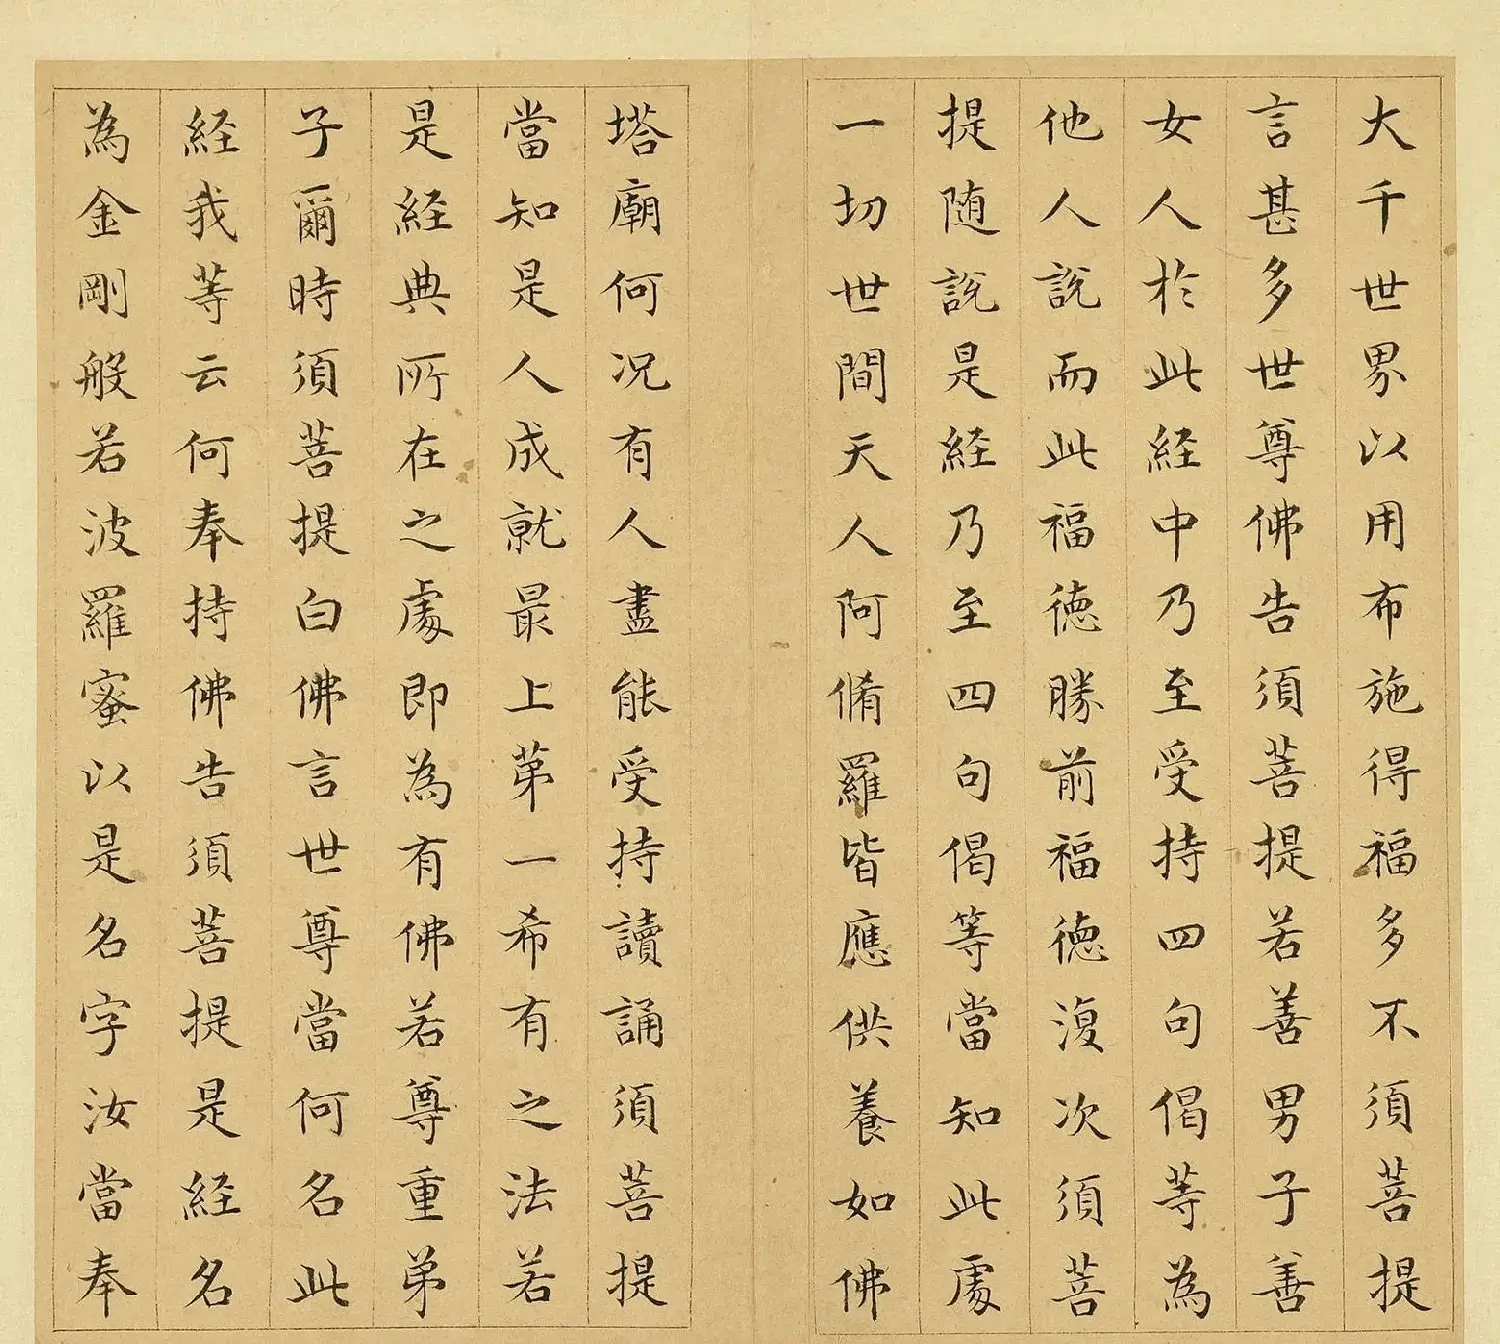 大千世界以用布施得福多不須菩提
言甚多世尊佛告須菩提若善男子善
女人於此経中乃至受持四句偈等為
他人説而此福德勝前福德復次須菩
提随説是経乃至四句偈等當知此處
一切世間天人阿脩羅皆應供養如佛
塔廟何况有人盡能受持讀誦須菩提
當知是人成就最上苐一希有之法若
是経典所在之處即為有佛若尊重弟
子爾時須菩提白佛言世尊當何名此
経我等云何奉持佛告須菩提是経名
為金剛般若波羅蜜以是名字汝當奉